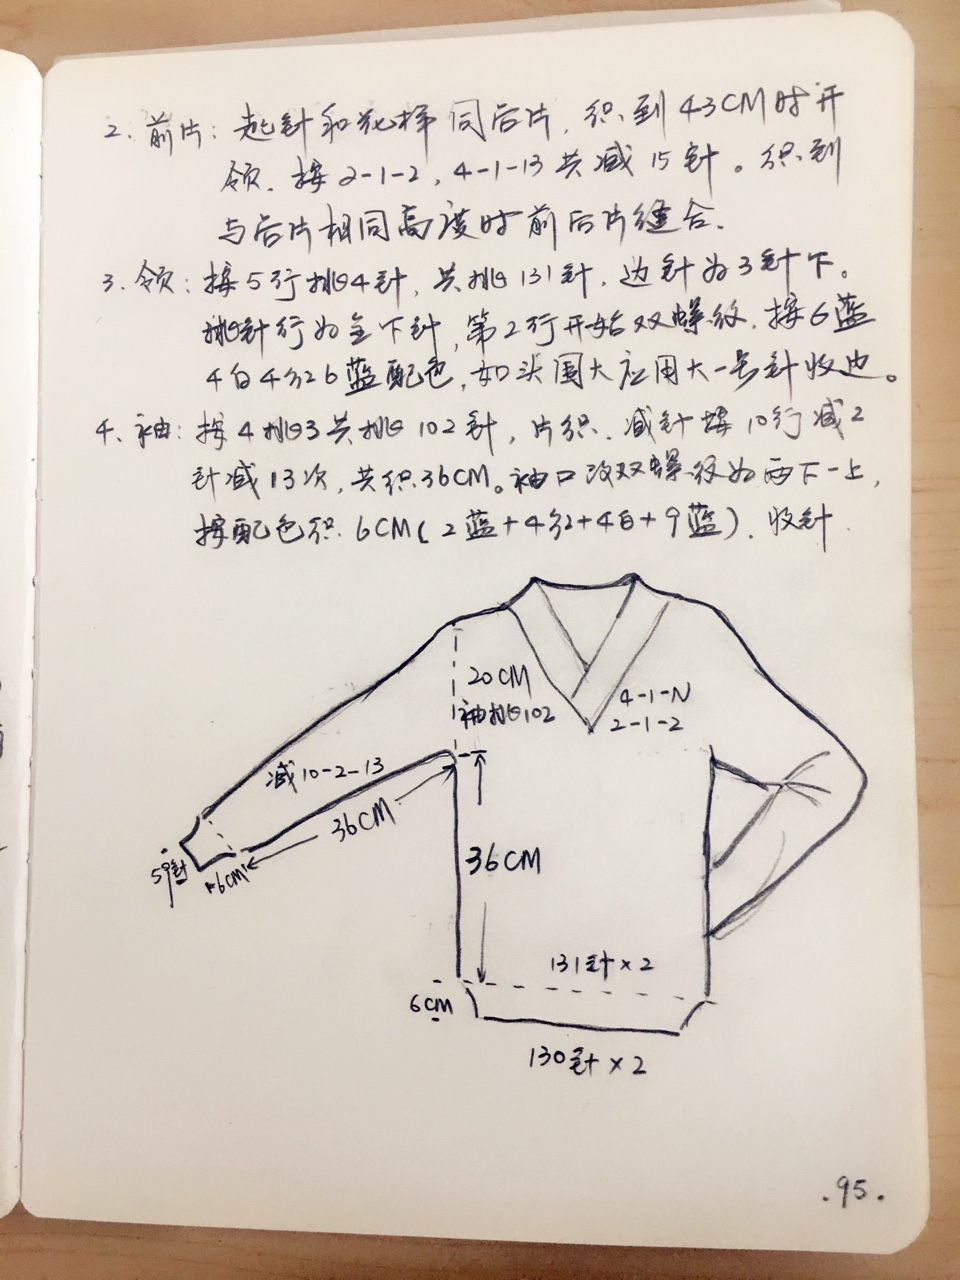 2. 前片: 起针和花样同后片, 织到43CM时开
领. 按2-1-2, 4-1-13共减15针。织到
与后片相同高度时前后片缝合.
3. 领: 按5行挑4针, 共挑131针, 边针为3针下。
挑针行为全下针, 第2行开始双螺纹. 按6蓝
4白4红26蓝配色, 如头围大应用大一号针收边。
4. 袖: 按4挑3共挑102针, 片织. 减针按10行减2
针减13次, 共织36CM。袖口改双螺纹为两下一上,
按配色织6CM(2蓝+4红+4白+9蓝). 收针.
20CM
袖挑102
4-1-N
2-1-2
减10-2-13
36CM
59针
6cm
36CM
131针×2
6CM
130针×2
.95.